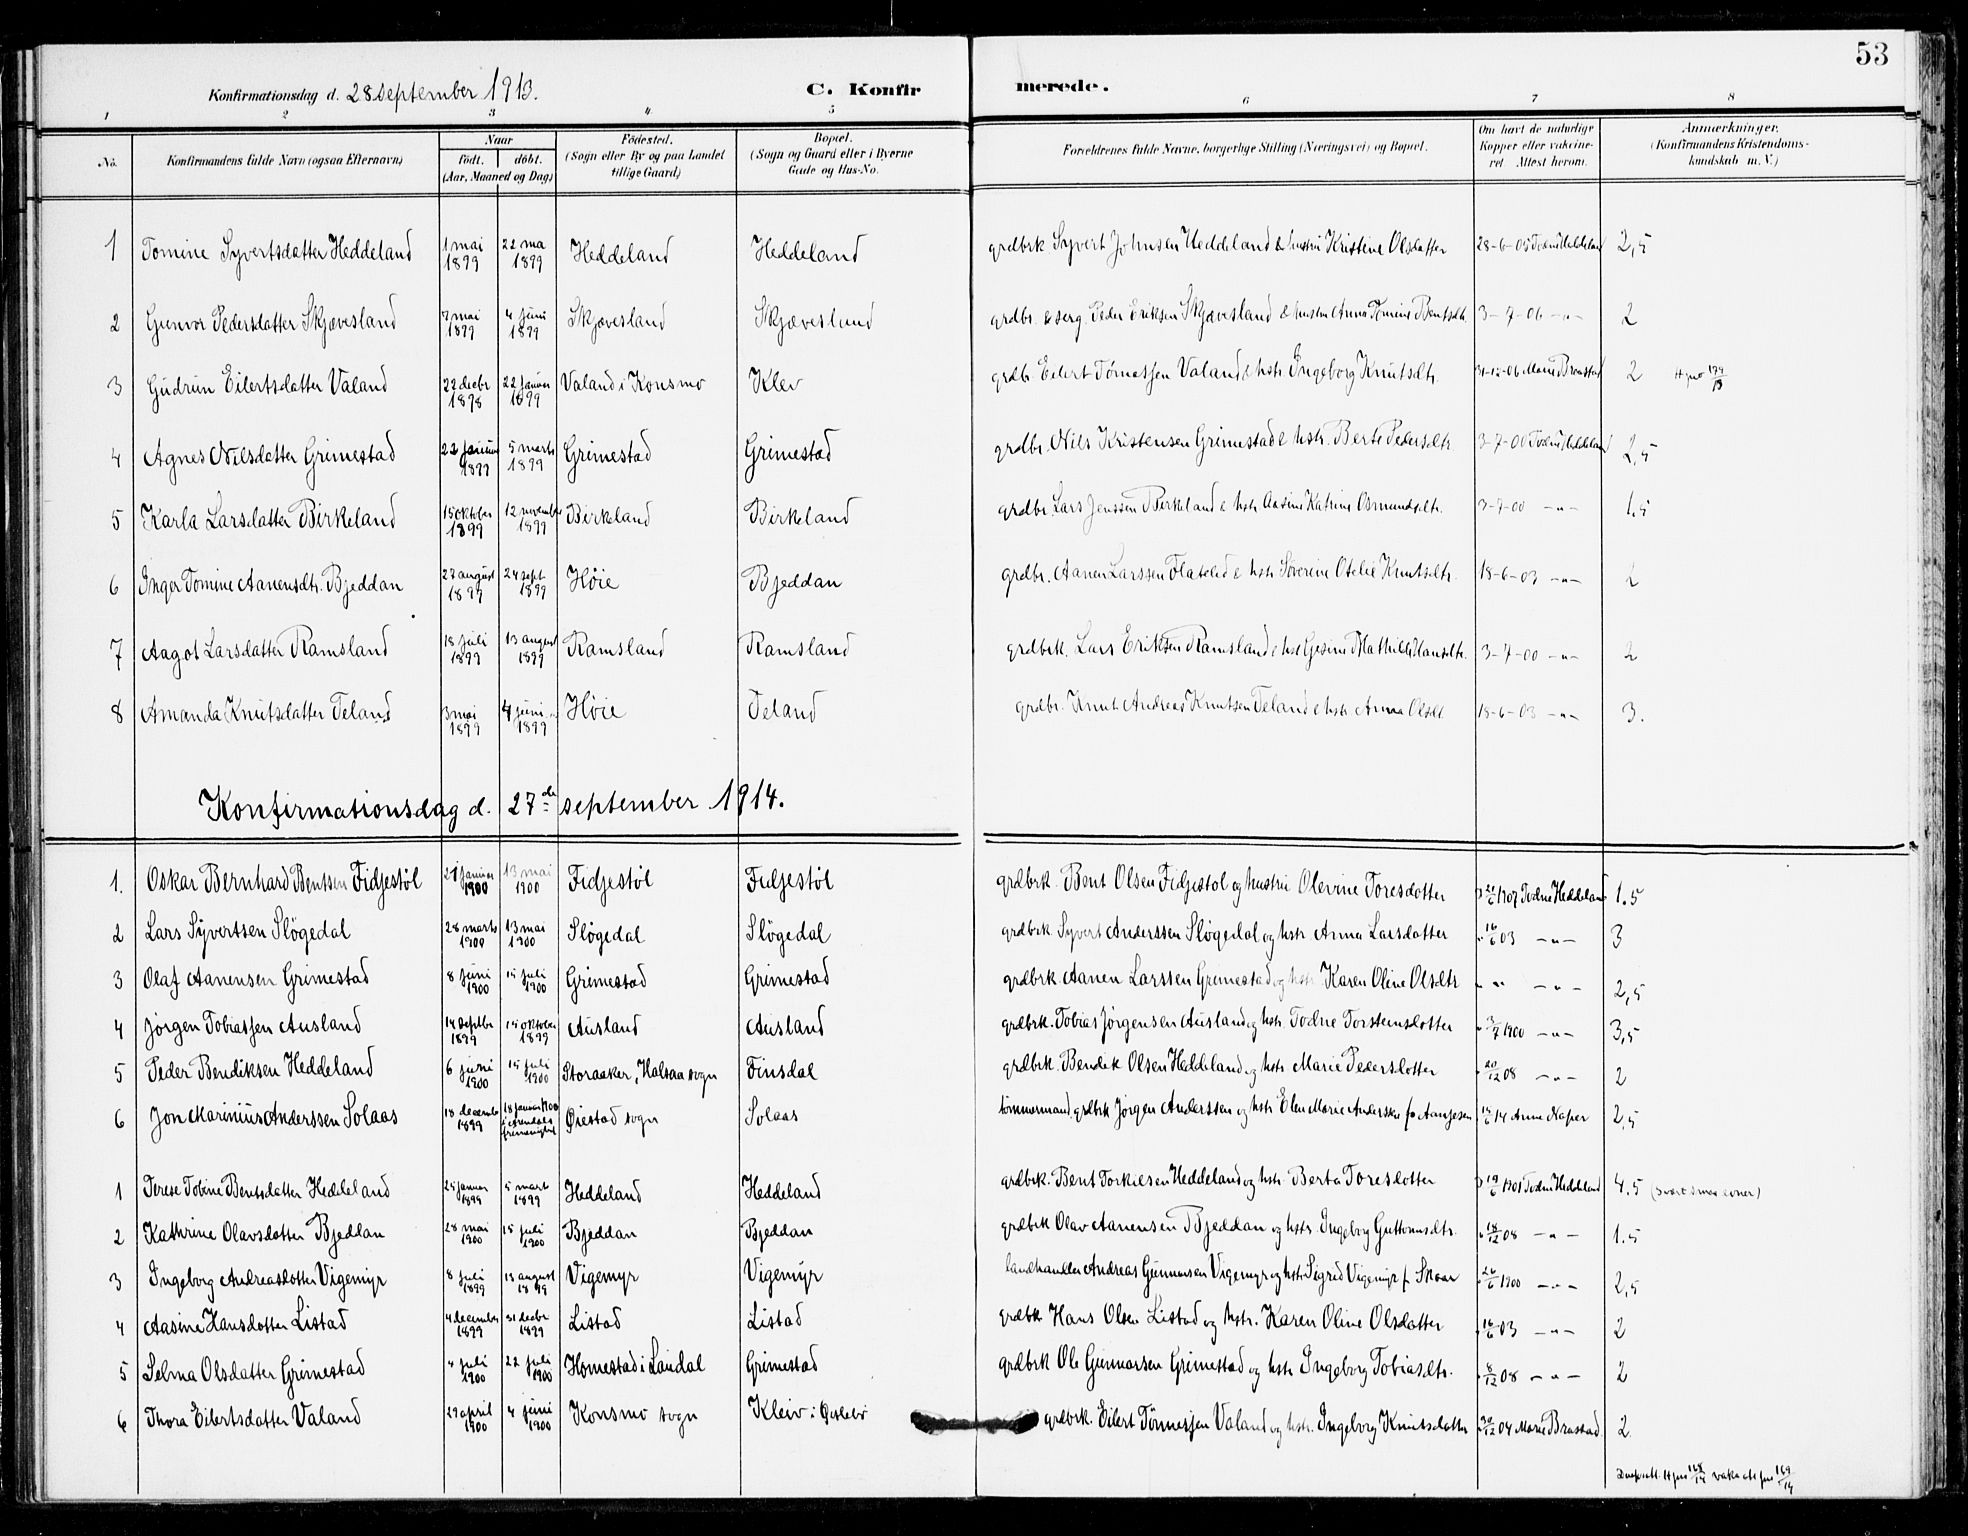 53
Konfirmationsdag d. 28 september 1913. C. Konfirmerede.
1 2 3 4 5 6 7 8
No. Konfirmandens fulde Navn (ogsaa Efternavn) Naar født. døbt. (Aar, Maaned og Dag) Fødested. (Sogn eller By og paa Landet tillige Gaard) Bopæl. (Sogn og Gaard eller i Byerne Gade og Hus-No. Forældrenes fulde Navne, borgerlige Stilling (Næringsvei) og Bopæl. Om havt de naturlige Kopper eller vaccineret. Attest herom. Anmærkninger. (Konfirmandens Kristendomskundskab m. V.)
1 Tomine Syvertsdatter Heddeland 1 mai 1899 22 mai 1899 Heddeland Heddeland grdbrk. Syvert Johnsen Heddeland & hustru Kristine Olsdatter 28-6-05 Todne Heddeland 2,5
2 Gunvor Pedersdatter Skjævesland 7 mai 1899 4 juni 1899 Skjævesland Skjævesland grdbr. & serg. Peder Eriksen Skjævesland & hustru Anna Tomine Bentsdtr. 3-7-06 -"- 2
3 Gudrun Eilertsdatter Valand 22 decbr 1898 22 januar 1899 Valand i Konsmo Klev grdbr. Eilert Tørnessen Valand & hstr. Ingeborg Knutsdtr. 31-12-06 Marie Braastad 2
4 Agnes Nilsdatter Grimestad 22 januar 1899 5 marts 1899 Grimestad Grimestad grdbr. Nils Kristensen Grimestad & hstr. Berte Pedersdtr 3-7-00 Todne Heddeland 2,5
5 Karla Larsdatter Birkeland 15 oktober 1899 12 november 1899 Birkeland Birkeland grdbr. Lars Jenssen Birkeland & hstr. Aasine Katrine Osmundsdtr. 3-7-00 -"- 1.5
6 Inger Tomine Aanensdtr. Bjeddan 27 august 1899 24 sept 1899 Høie Bjeddan grdbr. Aanen Larssen Flateled & hstr Severine Otelie Knutsdtr. 18-6-03 -"- 2
7 Aagot Larsdatter Ramsland 18 juli 1899 13 august 1899 Ramsland Ramsland grdbrk. Lars Eriksen Ramsland & hstr Gesine Mathilde Hansdtr. 3-7-00 -"- 2
8 Amanda Knutsdatter Teland 3 mai 1899 4 juni 1899 Høie Teland grdbr. Knut Andreas Knutsen Teland & hstr. Anna Olsdt. 18-6-03 -"- 3.
Konfirmationsdag d. 27de september 1914.
1. Oskar Bernhard Bentsen Fidjestøl 21 januar 1900 13 mai 1900 Fidjestøl Fidjestøl grdbrk. Bent Olsen Fidjestøl og hustru Olevine Toresdatter 1907 Todne Heddeland 1.5
2 Lars Syvertsen Sløgedal 28 marts 1900 13 mai 1900 Sløgedal Sløgedal grdbrk Syvert Anderssen Sløgedal og hstr. Anna Larsdatter 16/6 03 -"- 3
3 Olaf Aanensen Grimestad 8 juni 1900 15 juli 1900 Grimestad Grimestad grdbrk. Aanen Larssen Grimestad og hstr. Karen Oline Olsdtr " -"- 2,5
4 Jørgen Tobiassen Ausland 14 septbr 1899 15 oktober 1899 Ausland Ausland grdbrk. Tobias Jørgensen Ausland og hstr. Todne Torsteinsdotter 3/7 1900 -"- 3,5
5 Peder Bendiksen Heddeland 6 juni 1900 15 juli 1900 Storaaker, Halsaa sogn Finsdal grdbrk. Bendik Olsen Heddeland og hstr. Marie Pedersdotter 20/12 08 -"- 2
6 Jon Marinius Anderssen Solaas 18 december 1899 18 januar 1900 i Arendals frimenighet Øiestad sogn Solaas tømmermand, grdbrk Jørgen Anderssen og hstr Elen Marie Anderssen f. Aanjesen 14/6 14 Anne Naper 2,5
1 Terese Tobine Bentsdatter Heddeland 25 januar 1899 5 mars 1899 Heddeland Heddeland grdbrk. Bent Torkilsen Heddeland og hstr. Berta Toresdotter 19/6 1901 Todne Heddeland 4.5
2 Kathrine Olavsdotter Bjeddan 28 mai 1900 15 juli 1900 Bjeddan Bjeddan grdbrk Olav Aanensen Bjeddan og hstr. Ingeborg Guttormsdtr. 18/12 08 -"- 1.5
3 Ingeborg Andreasdotter Vigemyr 8 juli 1899 13 august 1899 Vigemyr Vigemyr landhandler Andreas Gunnarsen Vigemyr og hstr. Sigrid Vigemyr f. Skaar 26/6 1900 -"- 2,5
4 Aasine Hansdotter Listad 4 december 1899 31 decbr 1899 Listad Listad grdbk Hans Olsen Listad og hstr. Karen Oline Olsdatter 16/6 03 -"- 2
5 Selma Olsdatter Grimestad 4 juli 1900 22 juli 1900 Homestad i Laudal Grimestad grdbrk Ole Gunnarsen Grimestad og hstr Ingeborg Tobiasdtr. 8/12 08 -"- 2
6 Thora Eilertsdatter Valand 29 april 1900 4 juni 1900 Konsmo sogn Kleiv i Øislebø grdbrk. Eilert Tønnesen Valand og hstr. Ingeborg Knutsdatter 30/12 04 Marie Braastad 2